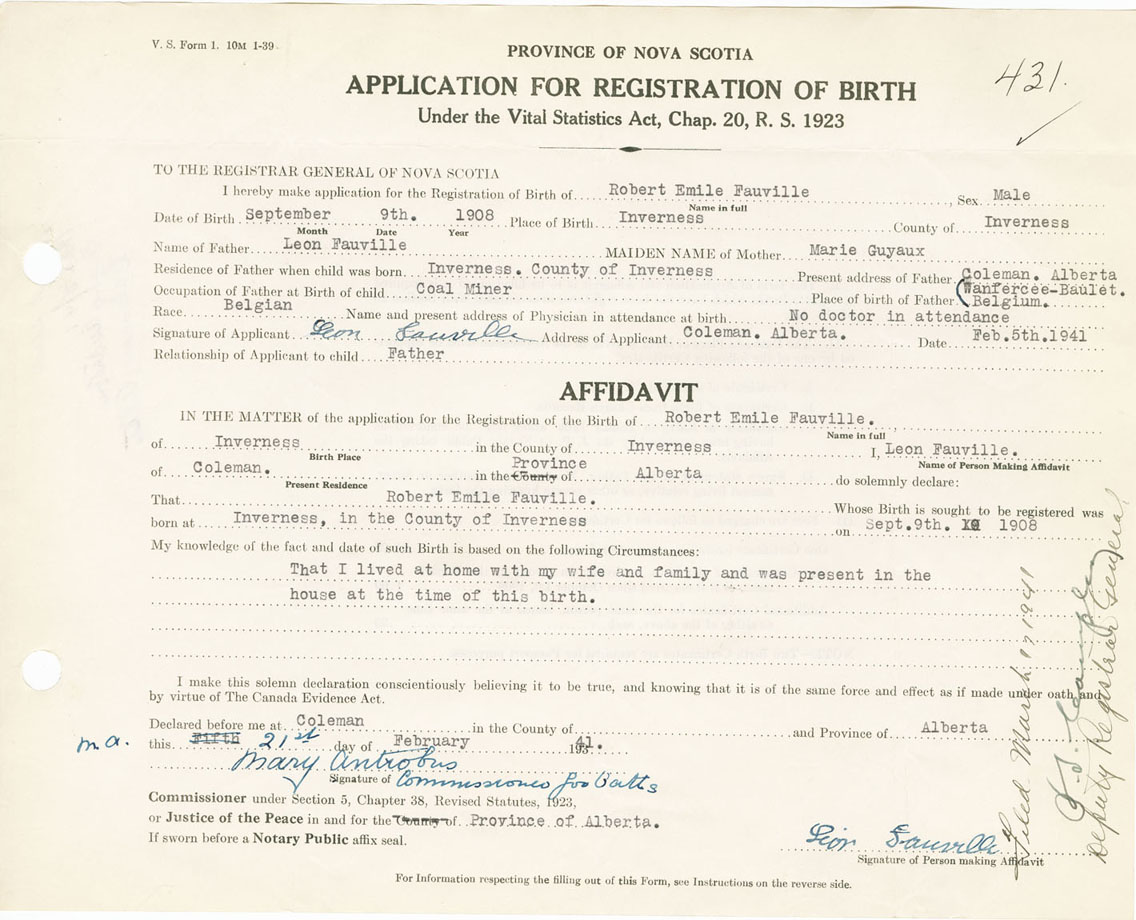 V. S. Form 1. 10M 1-39
PROVINCE OF NOVA SCOTIA
431.
APPLICATION FOR REGISTRATION OF BIRTH
Under the Vital Statistics Act, Chap. 20, R. S. 1923
TO THE REGISTRAR GENERAL OF NOVA SCOTIA
I hereby make application for the Registration of Birth of Robert Emile Fauville, Sex Male
Name in full
Date of Birth September 9th. 1908 Place of Birth Inverness County of Inverness
Month Date Year
Name of Father Leon Fauville MAIDEN NAME of Mother Marie Guyaux
Residence of Father when child was born Inverness. County of Inverness Present address of Father Coleman. Alberta
Occupation of Father at Birth of child Coal Miner Place of birth of Father (Wanfercee-Baulet. Belgium.
Race Belgian Name and present address of Physician in attendance at birth No doctor in attendance
Signature of Applicant Leon Fauville Address of Applicant Coleman. Alberta. Date Feb.5th.1941
Relationship of Applicant to child Father
AFFIDAVIT
IN THE MATTER of the application for the Registration of the Birth of Robert Emile Fauville.
Name in full
of Inverness in the County of Inverness I, Leon Fauville.
Birth Place Name of Person Making Affidavit
of Coleman. in the County Province of Alberta do solemnly declare:
Present Residence
That Robert Emile Fauville. Whose Birth is sought to be registered was
born at Inverness, in the County of Inverness on Sept.9th. 1908
My knowledge of the fact and date of such Birth is based on the following Circumstances:
That I lived at home with my wife and family and was present in the
house at the time of this birth.
I make this solemn declaration conscientiously believing it to be true, and knowing that it is of the same force and effect as if made under oath and
by virtue of The Canada Evidence Act.
Declared before me at Coleman in the County of and Province of Alberta
m.a. this Fifth 21st day of February 1941.
Mary Antrobus
Signature of Commissioner for Oaths
Commissioner under Section 5, Chapter 38, Revised Statutes, 1923,
or Justice of the Peace in and for the County of Province of Alberta.
If sworn before a Notary Public affix seal.
Leon Fauville
Signature of Person making Affidavit
For Information respecting the filling out of this Form, see Instructions on the reverse side.
Filed March 17 1941
Deputy Registrar General